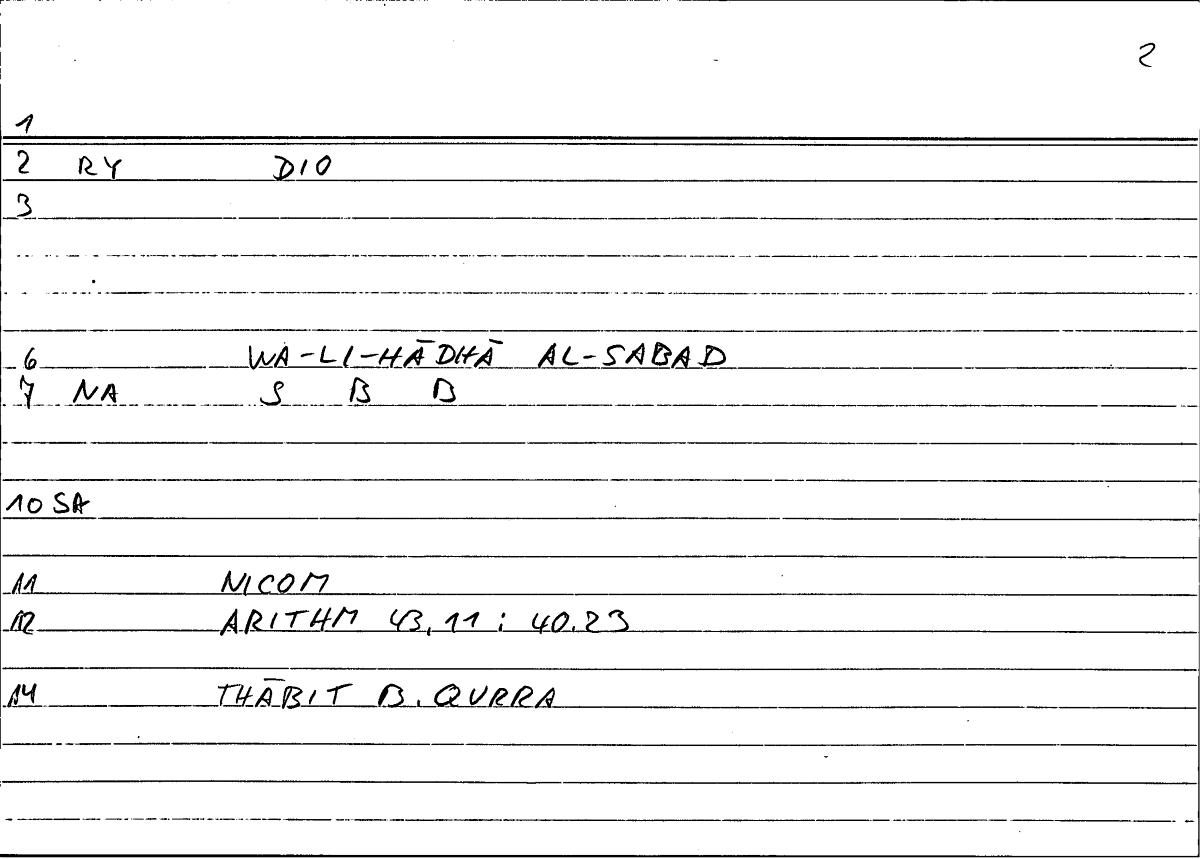 2
1
2 RY DIO
3
6 WA-LI-HĀDHĀ AL-SABAD
7 NA S B B
10 SA
11 NICOM
12 ARITHM 43,11 : 40.23
14 THĀBIT B. QURRA